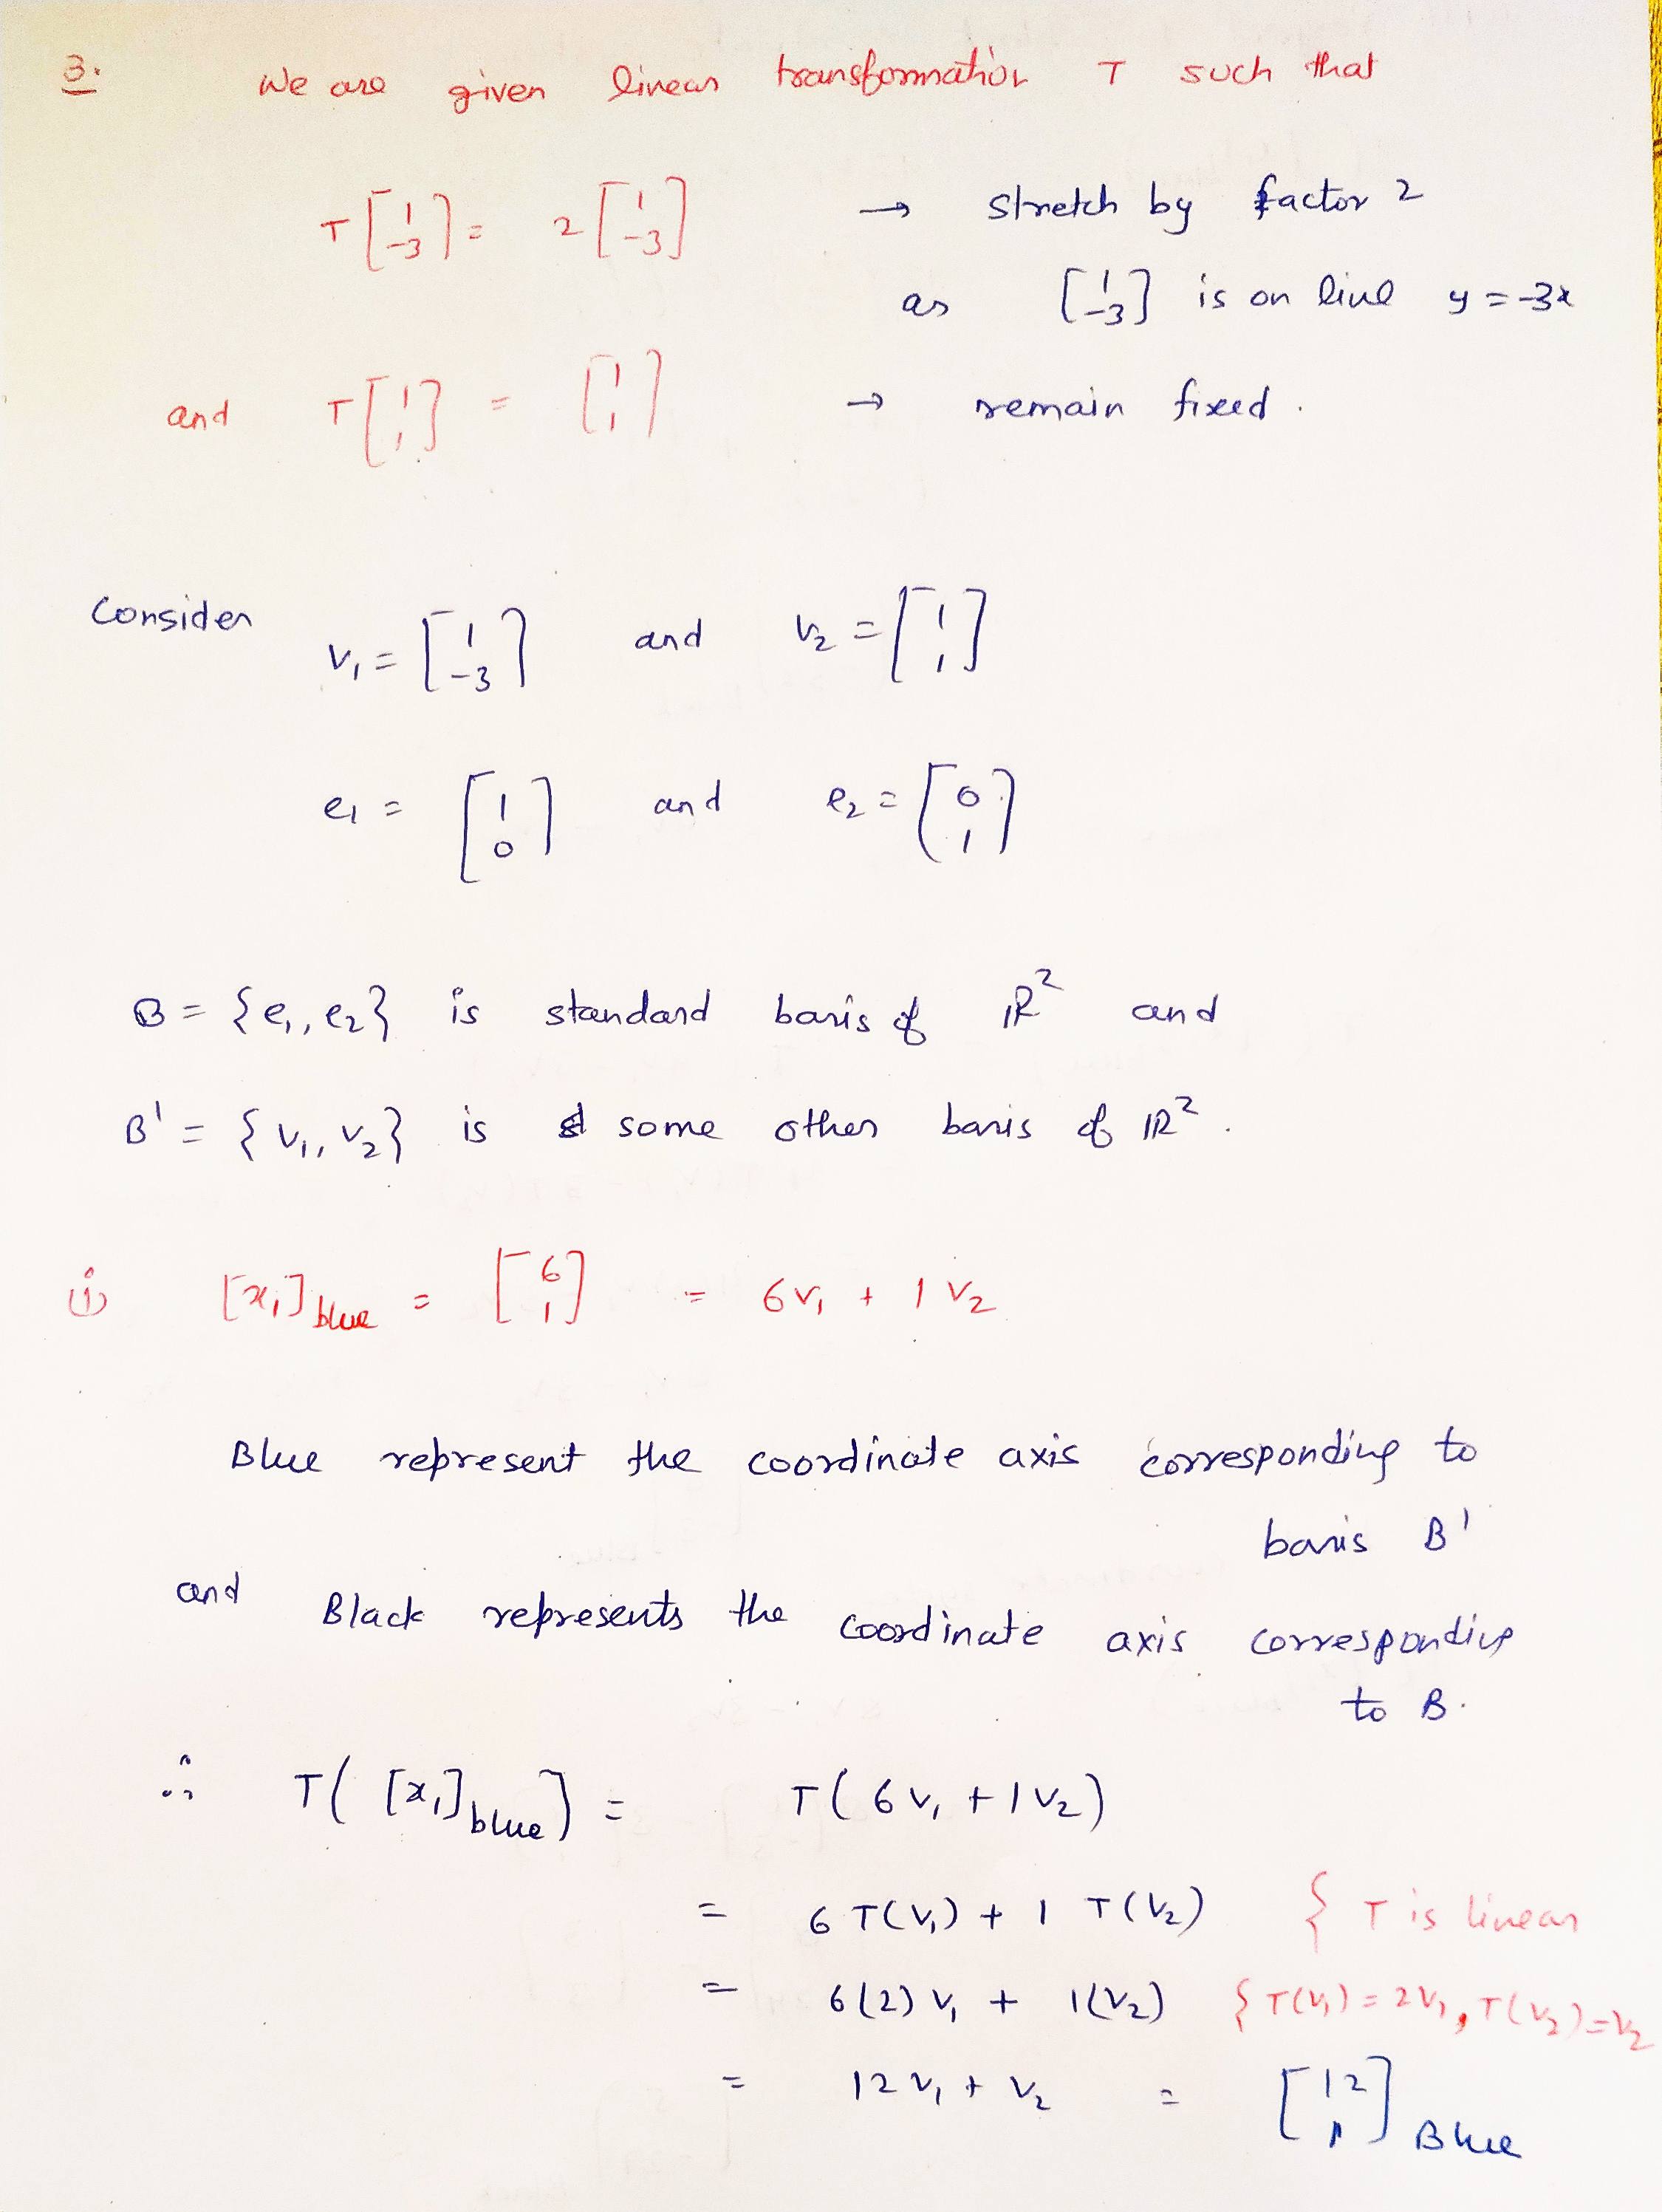 3. We are given linear transformation T such that
T[1 -3] = 2[1 -3] → stretch by factor 2
as [1 -3] is on line y = -3x
and T[1 1] = [1 1] → remain fixed.
Consider v₁ = [1 -3] and v₂ = [1 1]
e₁ = [1 0] and e₂ = [0 1]
B = {e₁, e₂} is standard basis of ℝ² and
B' = {v₁, v₂} is some other basis of ℝ².
(i) [x₁]blue = [6 1] = 6v₁ + 1v₂
Blue represent the coordinate axis corresponding to
basis B'
and Black represents the coordinate axis corresponding
to B.
∴ T([x₁]blue) = T(6v₁ + 1v₂)
= 6T(v₁) + 1 T(v₂) { T is linear
= 6(2)v₁ + 1(v₂) { T(v₁) = 2v₁, T(v₂) = v₂
= 12v₁ + v₂ = [12 1]Blue